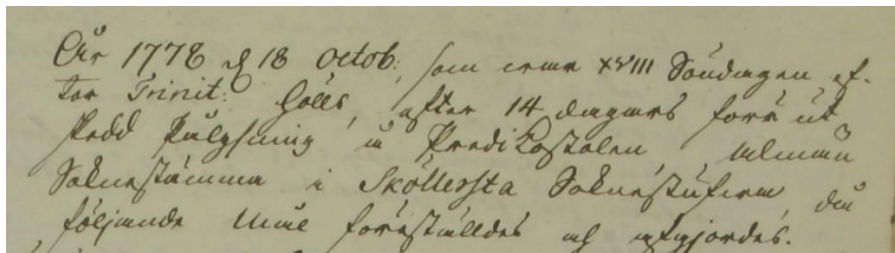 År 1778 d 18 Octob:, som war XVIII Söndagen ef-
ter Trinit: hölls, efter 14 dagars förr ut
skedd Pulysning å Predikostolen, allmän
Soknestämma i Sköllersta Soknestufwa, då
följande mål föreställdes och afgjordes.